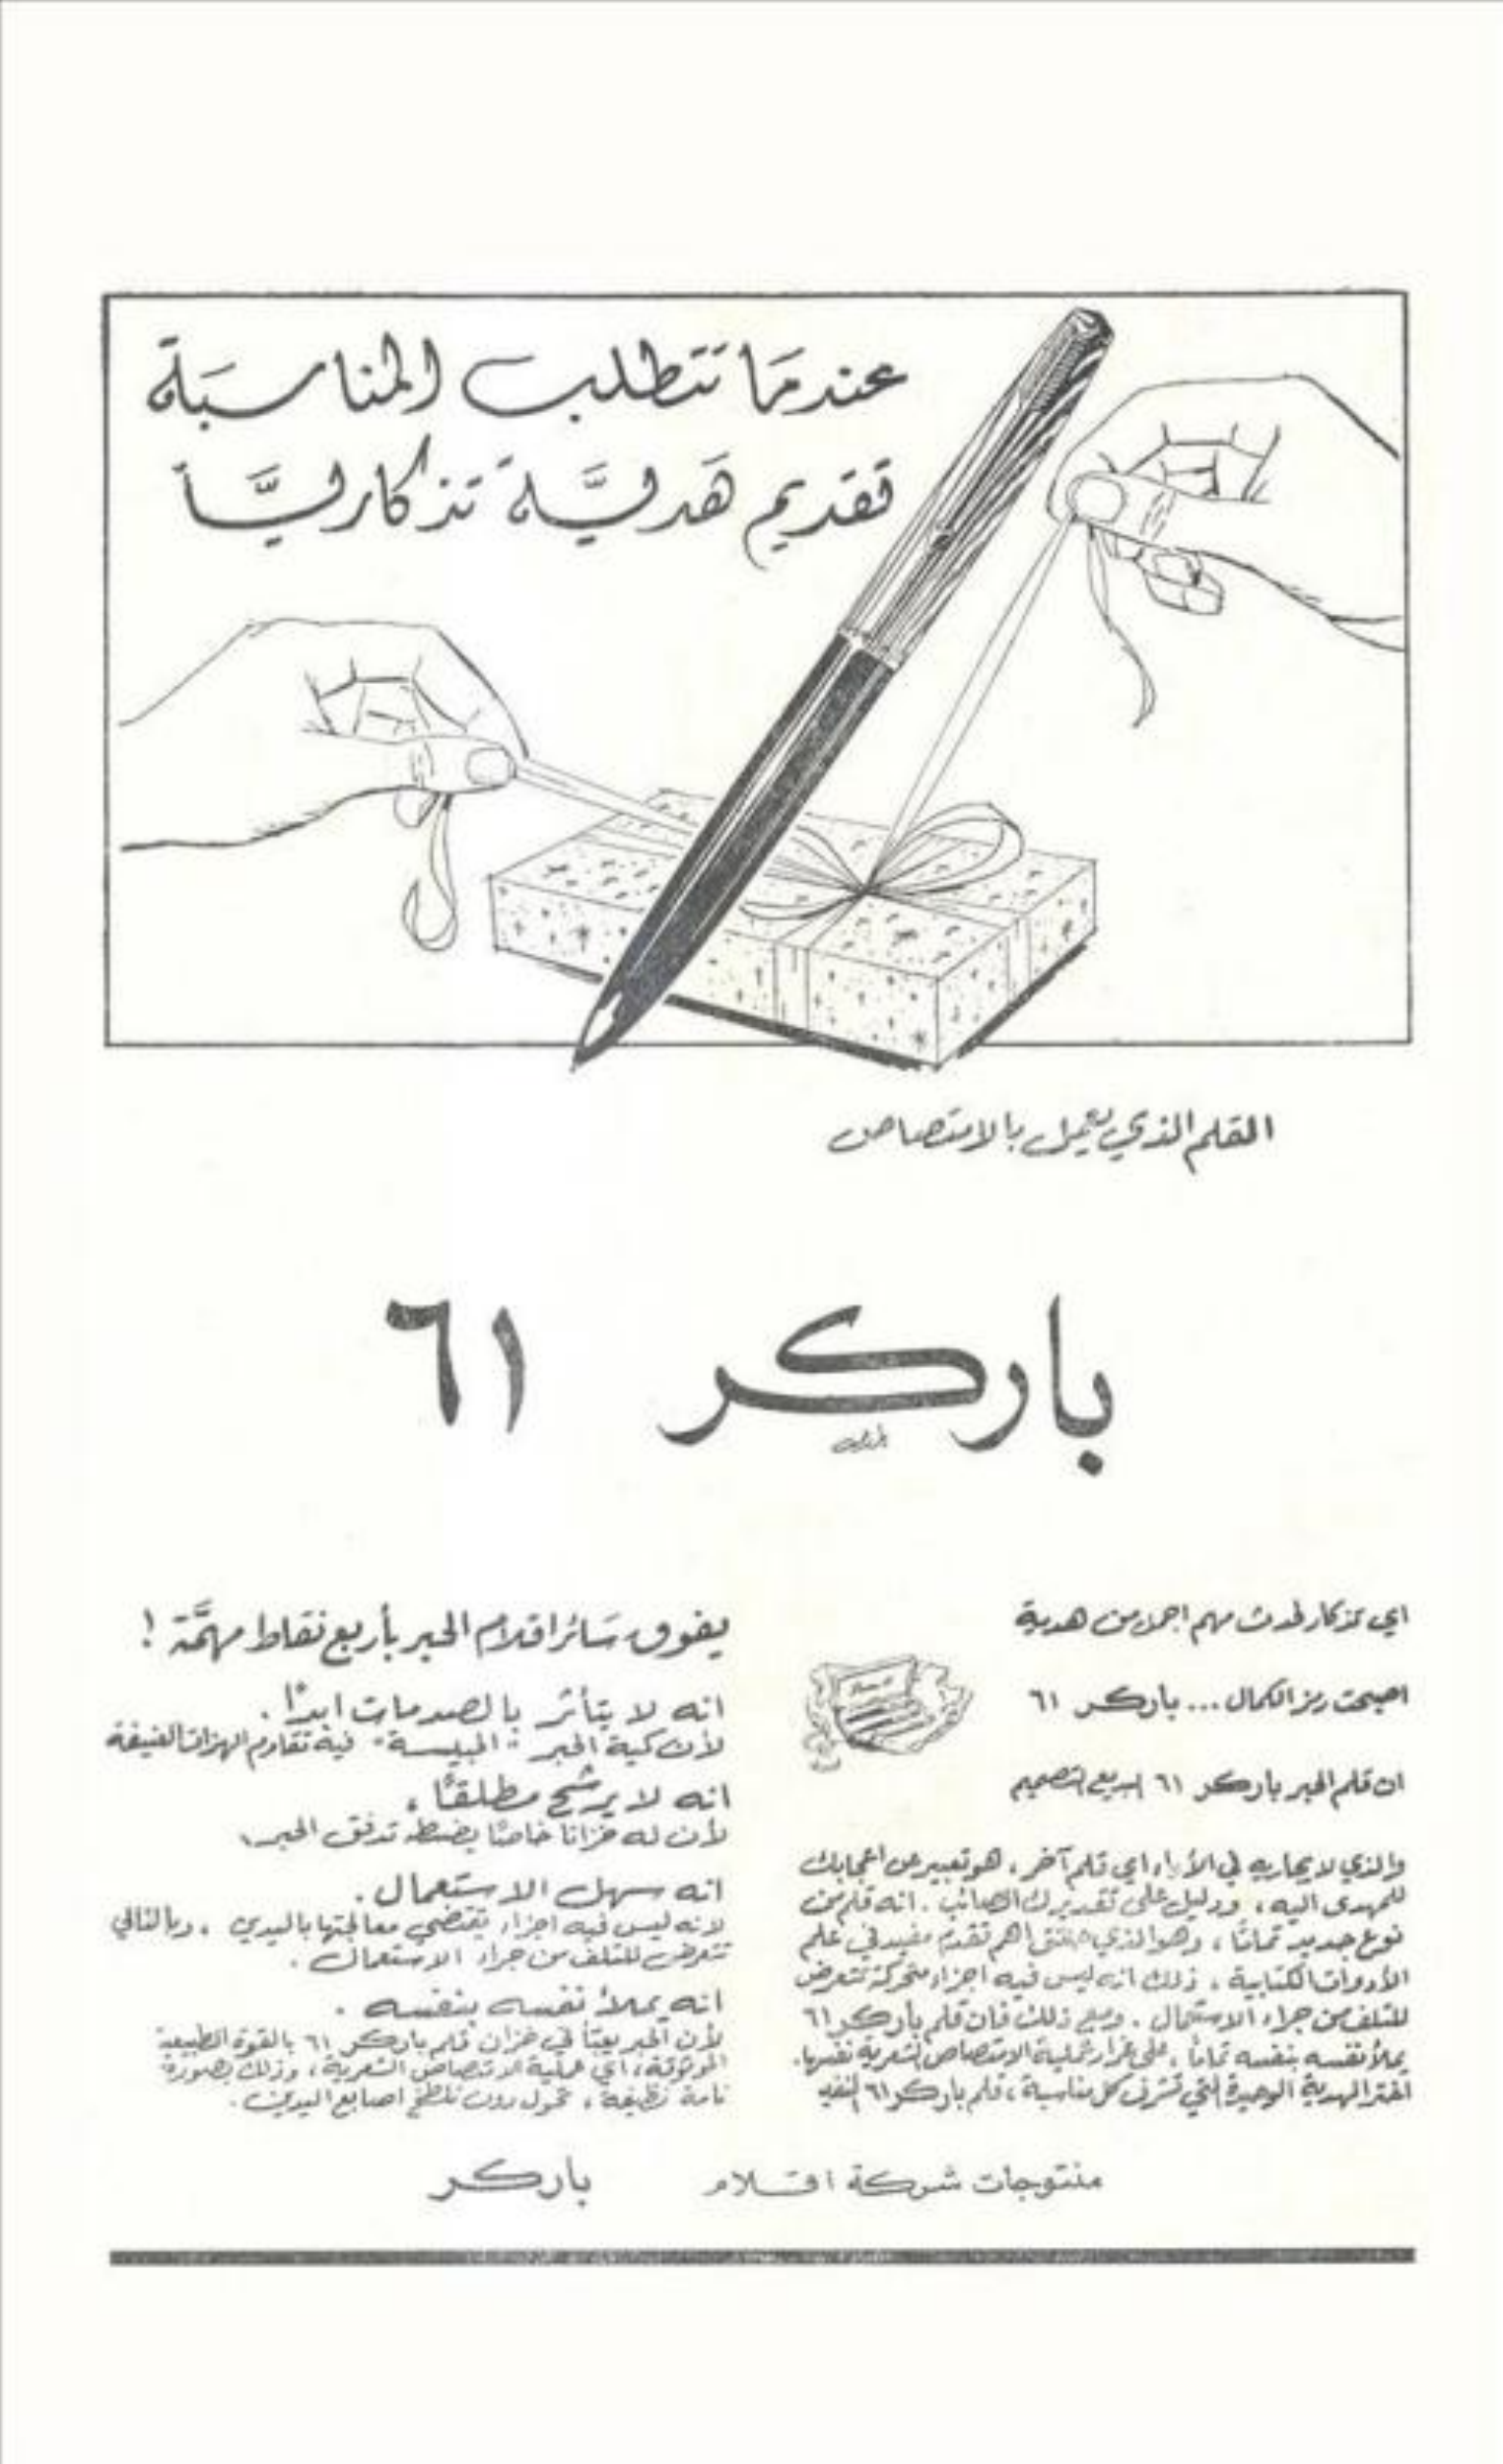 عندمَا تتَطلب المناسبَة
تقديم هَديَّة تذكاريَّاً
القلم الذي يعمل بالامتصاص
باركر ٦١
اي تذكار لحدث مهم اجمل من هدية
اصبحت رمز الكمال... باركر ٦١
ان قلم الحبر باركر ٦١ البديع التصميم
والذي لا يجاريه في الأداء اي قلم آخر، هو تعبير عن اعجابك
للمهدى اليه، ودليل على تقديرك الصائب. انه قلم من
نوع جديد تمامًا، وهو الذي حقق اهم تقدم مفيد في علم
الأدوات الكتابية. ذلك انه ليس فيه اجزاء متحركة تتعرض
للتلف من جراء الاستعمال. ومع ذلك فان قلم باركر ٦١
يملأ نفسه بنفسه تمامًا، على غرار عملية الامتصاص الشعرية نفسها.
اختر الهدية الوحيدة التي تشرف كل مناسبة، قلم باركر ٦١
يفوق سَائر اقلام الحبر بأربع نقاط مهمَّة!
انه لا يتأثر بالصدمات ابدًا.
لأن كمية الحبر "الحبيسة" فيه تقاوم الهزات العنيفة
انه لا يرشح مطلقًا.
لأن له خزانًا خاصًا يضبط تدفق الحبر.
انه سهل الاستعمال.
لانه ليس فيه اجزاء تقتضي معالجتها باليدي، وبالتالي
تتعرض للتلف من جراء الاستعمال.
انه يملأ نفسه بنفسه.
لأن الحبر يعبّأ في خزان قلم باركر ٦١ بالقوة الطبيعية
الموثوقة، اي عملية الامتصاص الشعرية، وذلك بصورة
تامة نظيفة، تحول دون تلطخ اصابع اليدين.
منتوجات شركة اقلام باركر